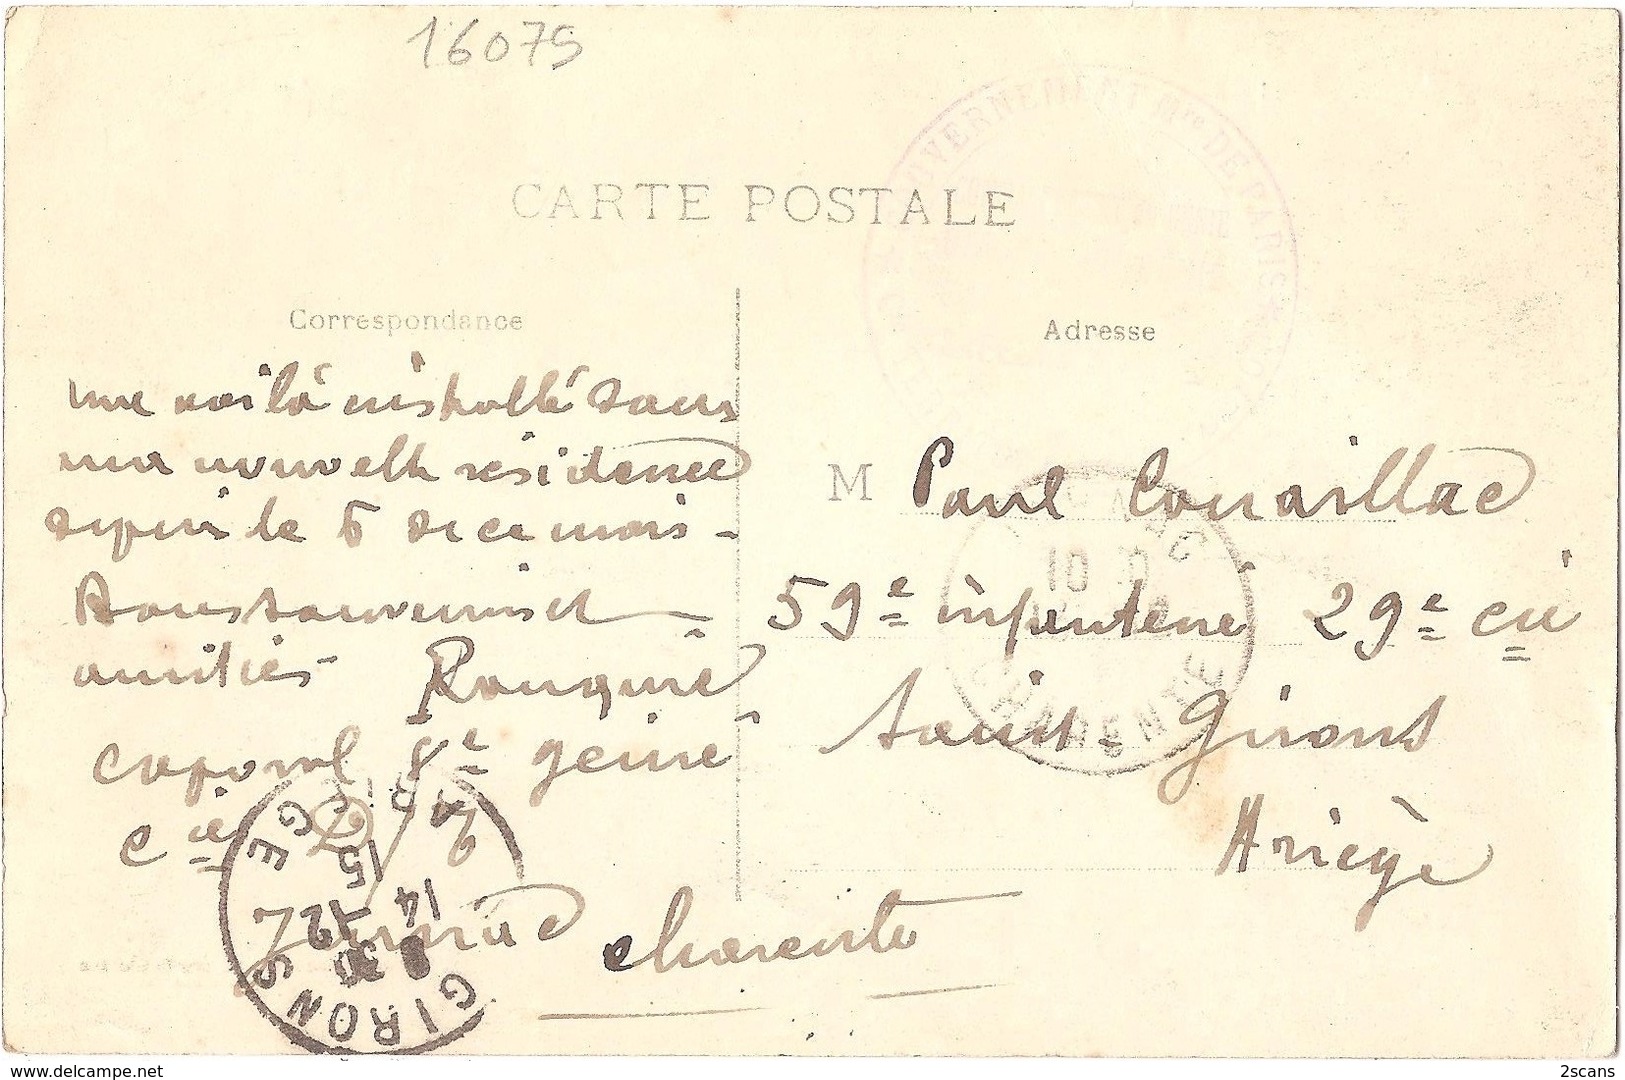 16075
GOUVERNEMENT Mre DE PARIS
CARTE POSTALE
Correspondance
Adresse
me voilà installé dans
ma nouvelle résidence
depuis le 6 de ce mois -
Bons souvenirs et
amitiés Rouquié
caporal 8e génie
Cie
charente
M Paul Couaillac
59e infanterie 29e cie
Saint-Girons
Ariège
CHARENTE
10
GIRONS
8 30
14 12
15
delcampe.net
2scans